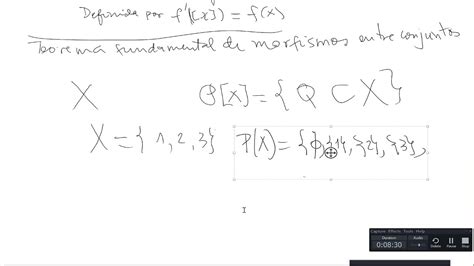 Definida por f'([x]) = f(x)
Teorema fundamental de morfismos entre conjuntos
X P[X] = { Q ⊂ X }
X = { 1, 2, 3 } P(X) = { ϕ, {1}, {2}, {3},
I
Capture Effects Tools Help
Duration Audio
0:08:30 Delete Pause Stop